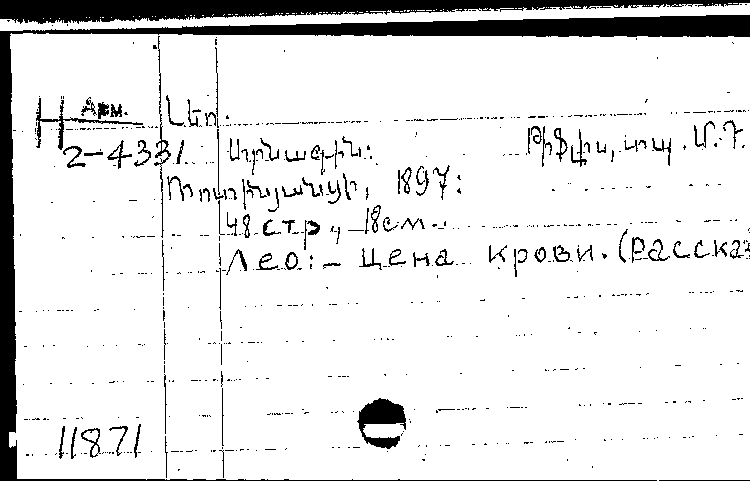 Арм.
Н
2-4331
Լեո.
Արնագին: Թիֆլիս, տպ. Մ. Դ.
Ռոտինյանցի, 1897:
48 стр, -18см.
Лео: - Цена крови. (Рассказ
11871